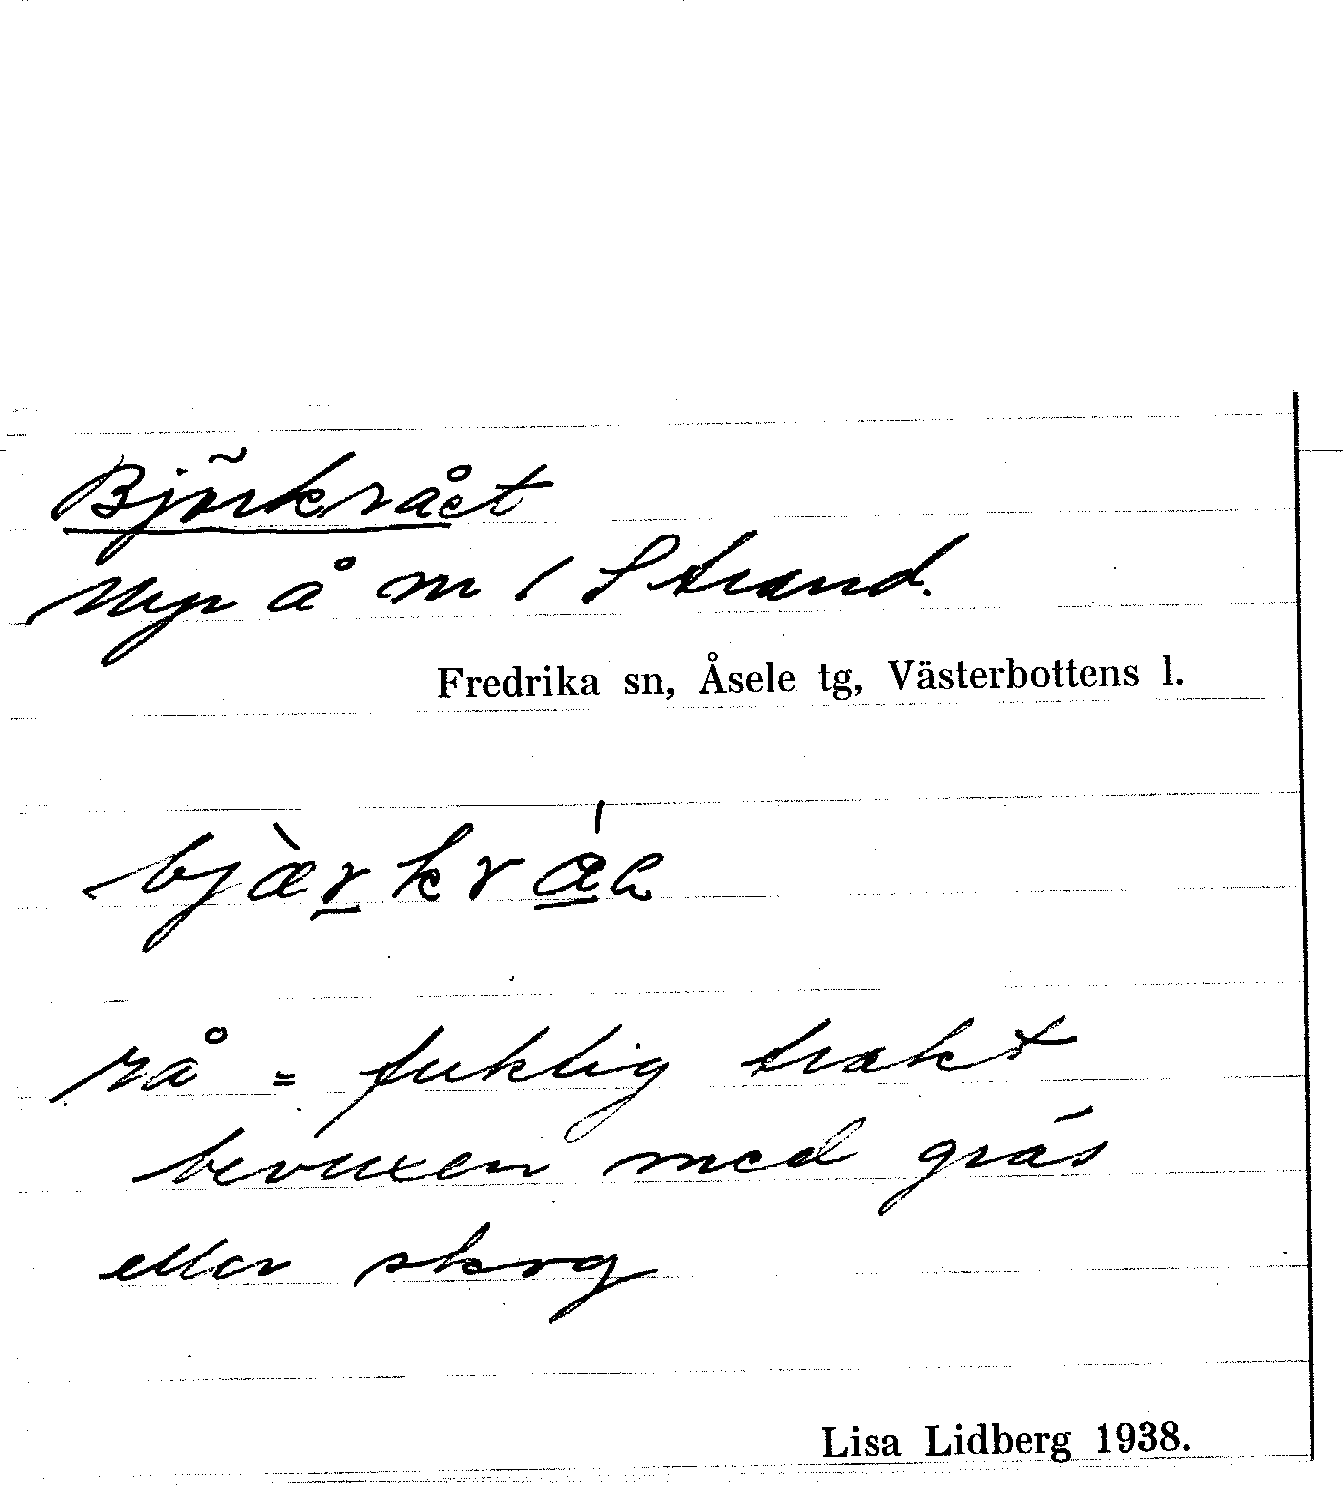 Björkrået
Myr å m / Strand.
Fredrika sn, Åsele tg, Västerbottens l.
rå = fuktig trakt
bevuxen med gräs
eller skog
Lisa Lidberg 1938.